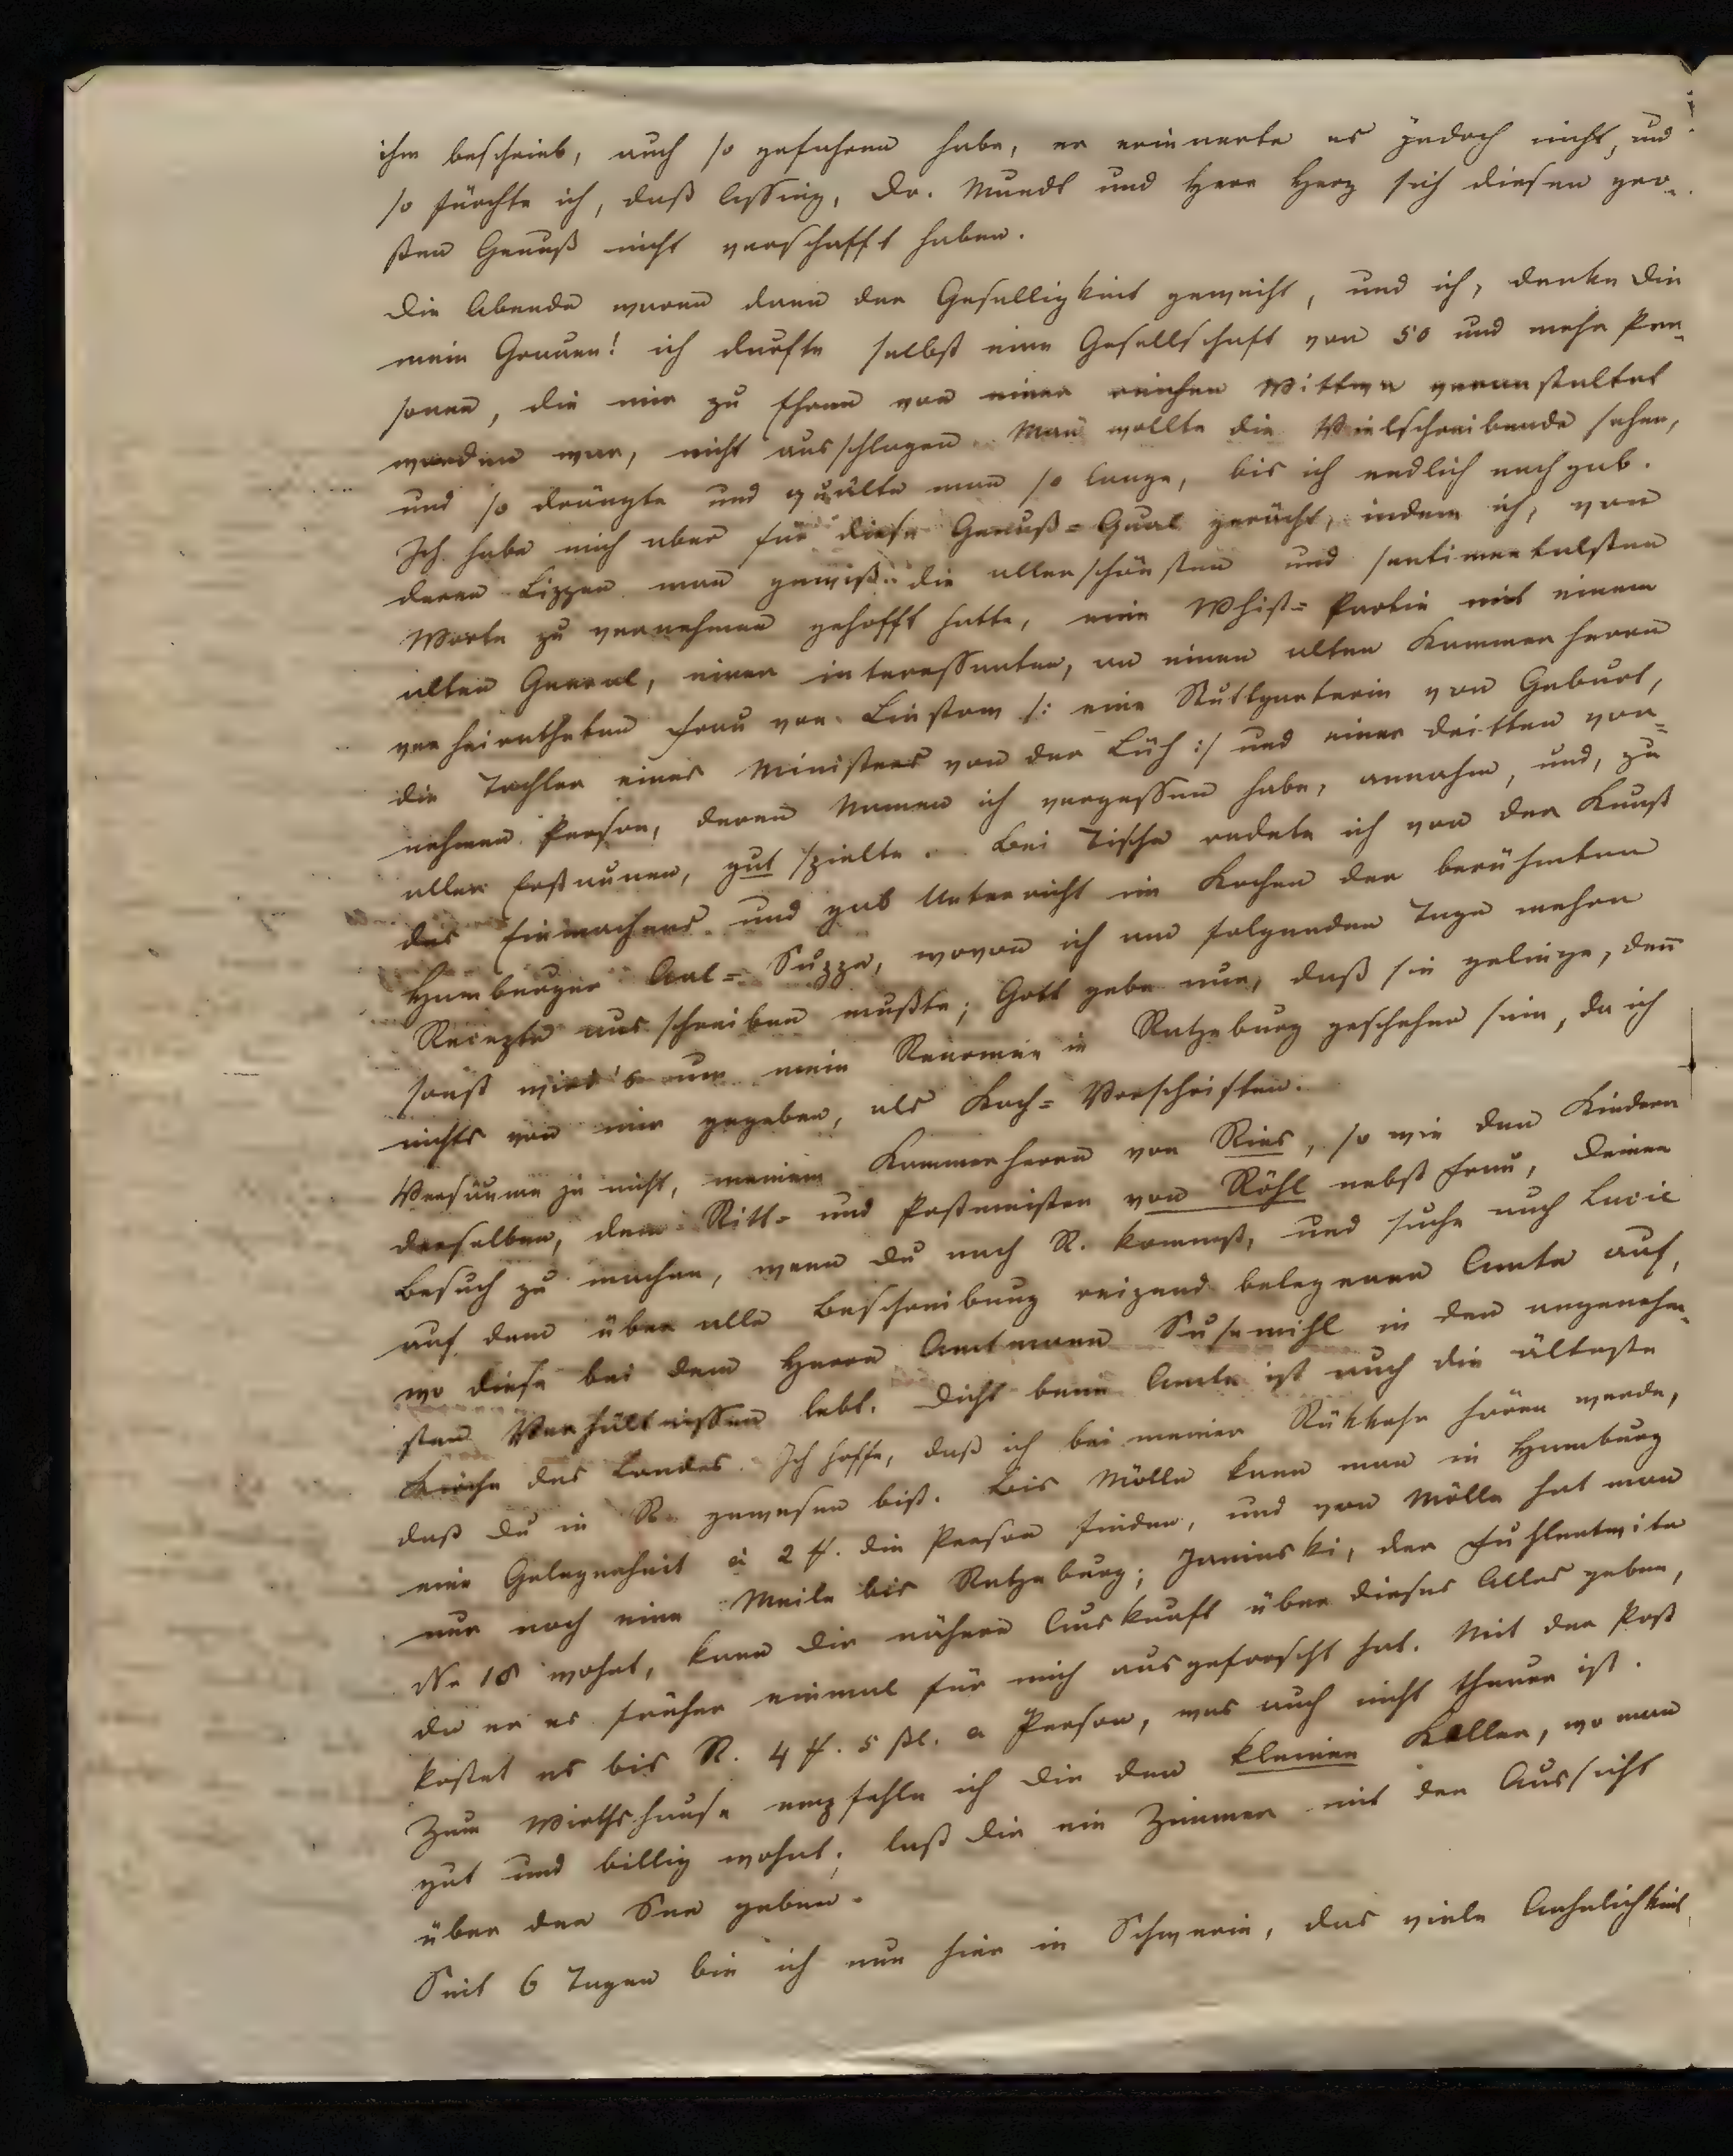 ihm beschrieb, auch so gefahren habe, er erinnerte es jedoch nicht, und
so fürchte ich, daß Lessing, Dr. Mundt und Herr Herz sich diesen gro-
ßen Genuß nicht verschafft haben.
Die Abende waren dann der Geselligkeit geweiht, und ich, denke Dir
mein Grauen! ich durfte selbst eine Gesellschaft von 50 und mehr Per-
sonen, die mir zu Ehren von einer reichen Wittwe veranstaltet
worden war, nicht ausschlagen. Man wollte die Vielschreibende sehen,
und so drängte und quälte man so lange, bis ich endlich nachgab.
Ich habe mich aber für diese Genuß-Qual gerächt, indem ich, von
deren Lippen man gewiß die allerschönsten und sentimentalsten
Worte zu vernehmen gehofft hatte, eine Whist-Partie mit einem
alten General, einer interessanten, an einen alten Kammerherrn
verheiratheten Frau von Linstow /: eine Stuttgarterin von Geburt,
die Tochter eines Ministers von der Lüh :/ und einer dritten vor-
nehmen Person, deren Namen ich vergessen habe, annahm, und, zu
aller Erstaunen, gut spielte. Bei Tische redete ich von der Kunst
des Einmachens und gab Unterricht im Kochen der berühmten
Hamburger Aal-Suppe, wovon ich am folgenden Tage mehre
Recepte ausschreiben mußte; Gott gebe nur, daß sie gelinge, denn
sonst wird's um mein Renomée in Ratzeburg geschehen sein, da ich
nichts von mir gegeben, als Koch-Vorschriften.
Versäume ja nicht, meinem Kammerherrn von Ries, so wie den Kindern
desselben, dem Ritt- und Postmeister von Röhl nebst Frau, Deinen
Besuch zu machen, wenn Du nach R. kommst, und suche auch Lucie
auf dem über alle Beschreibung reizend belegenen Amte auf,
wo diese bei dem Herrn Amtmann Susemihl in den angenehm-
sten Verhältnissen lebt. Dicht beim Amte ist auch die älteste
Kirche des Landes. Ich hoffe, daß ich bei meiner Rükkehr hören werde,
daß Du in R. gewesen bist. Bis Mölln kann man in Hamburg
eine Gelegenheit à 2 ₰. die Person finden, und von Mölln hat man
nur noch eine Meile bis Ratzeburg; Janinski, der Fuhlentwite
No 18 wohnt, kann Dir nähere Auskunft über dieses Alles geben,
da er es früher einmal für mich ausgeforscht hat. Mit der Post
kostet es bis R. 4 ₰. 5 ßl. a Person, was auch nicht theuer ist.
Zum Wirthshause empfehle ich Dir den kleinen Keller, wo man
gut und billig wohnt; laß Dir ein Zimmer mit der Aussicht
über den See geben.
Seit 6 Tagen bin ich nun hier in Schwerin, das viele Aehnlichkeit